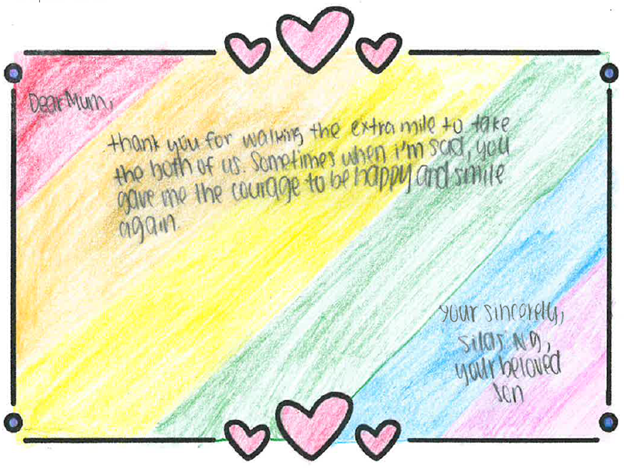 Dear Mum,
thank you for walking the extra mile to take
the both of us. Sometimes when i'm sad, you
gave me the courage to be happy and smile
again.
your sincerely,
Silas Ng,
your beloved
Son